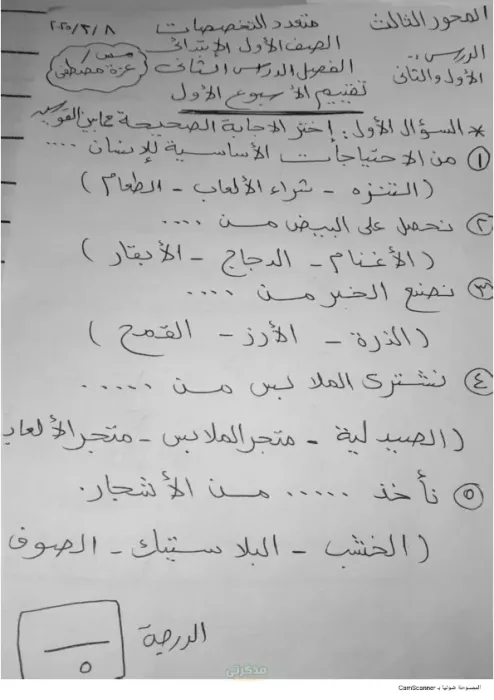 المحور الثالث
متعدد التخصصات
٢٠٢٥/٢/٨
الدرس:-
الأول والثانى
الصف الأول الإبتدائى
الفصل الدراسى الثانى
مس/
عزة مصطفى
تقييم الأسبوع الأول
* السؤال الأول: إختر الاجابة الصحيحة مما بين القوسين *
① من الاحتياجات الأساسية للإنسان ....
(التنزه - شراء الألعاب - الطعام)
② نحصل على البيض من ....
(الأغنام - الدجاج - الأبقار)
③ نصنع الخبز من ....
(الذرة - الأرز - القمح)
④ نشترى الملابس من .....
(الصيدلية - متجر الملابس - متجر الألعاب
⑤ نأخذ ..... من الأشجار.
(الخشب - البلاستيك - الصوف
الدرجة
٥
مذكرتي
الممسوحة ضوئيا بـ CamScanner